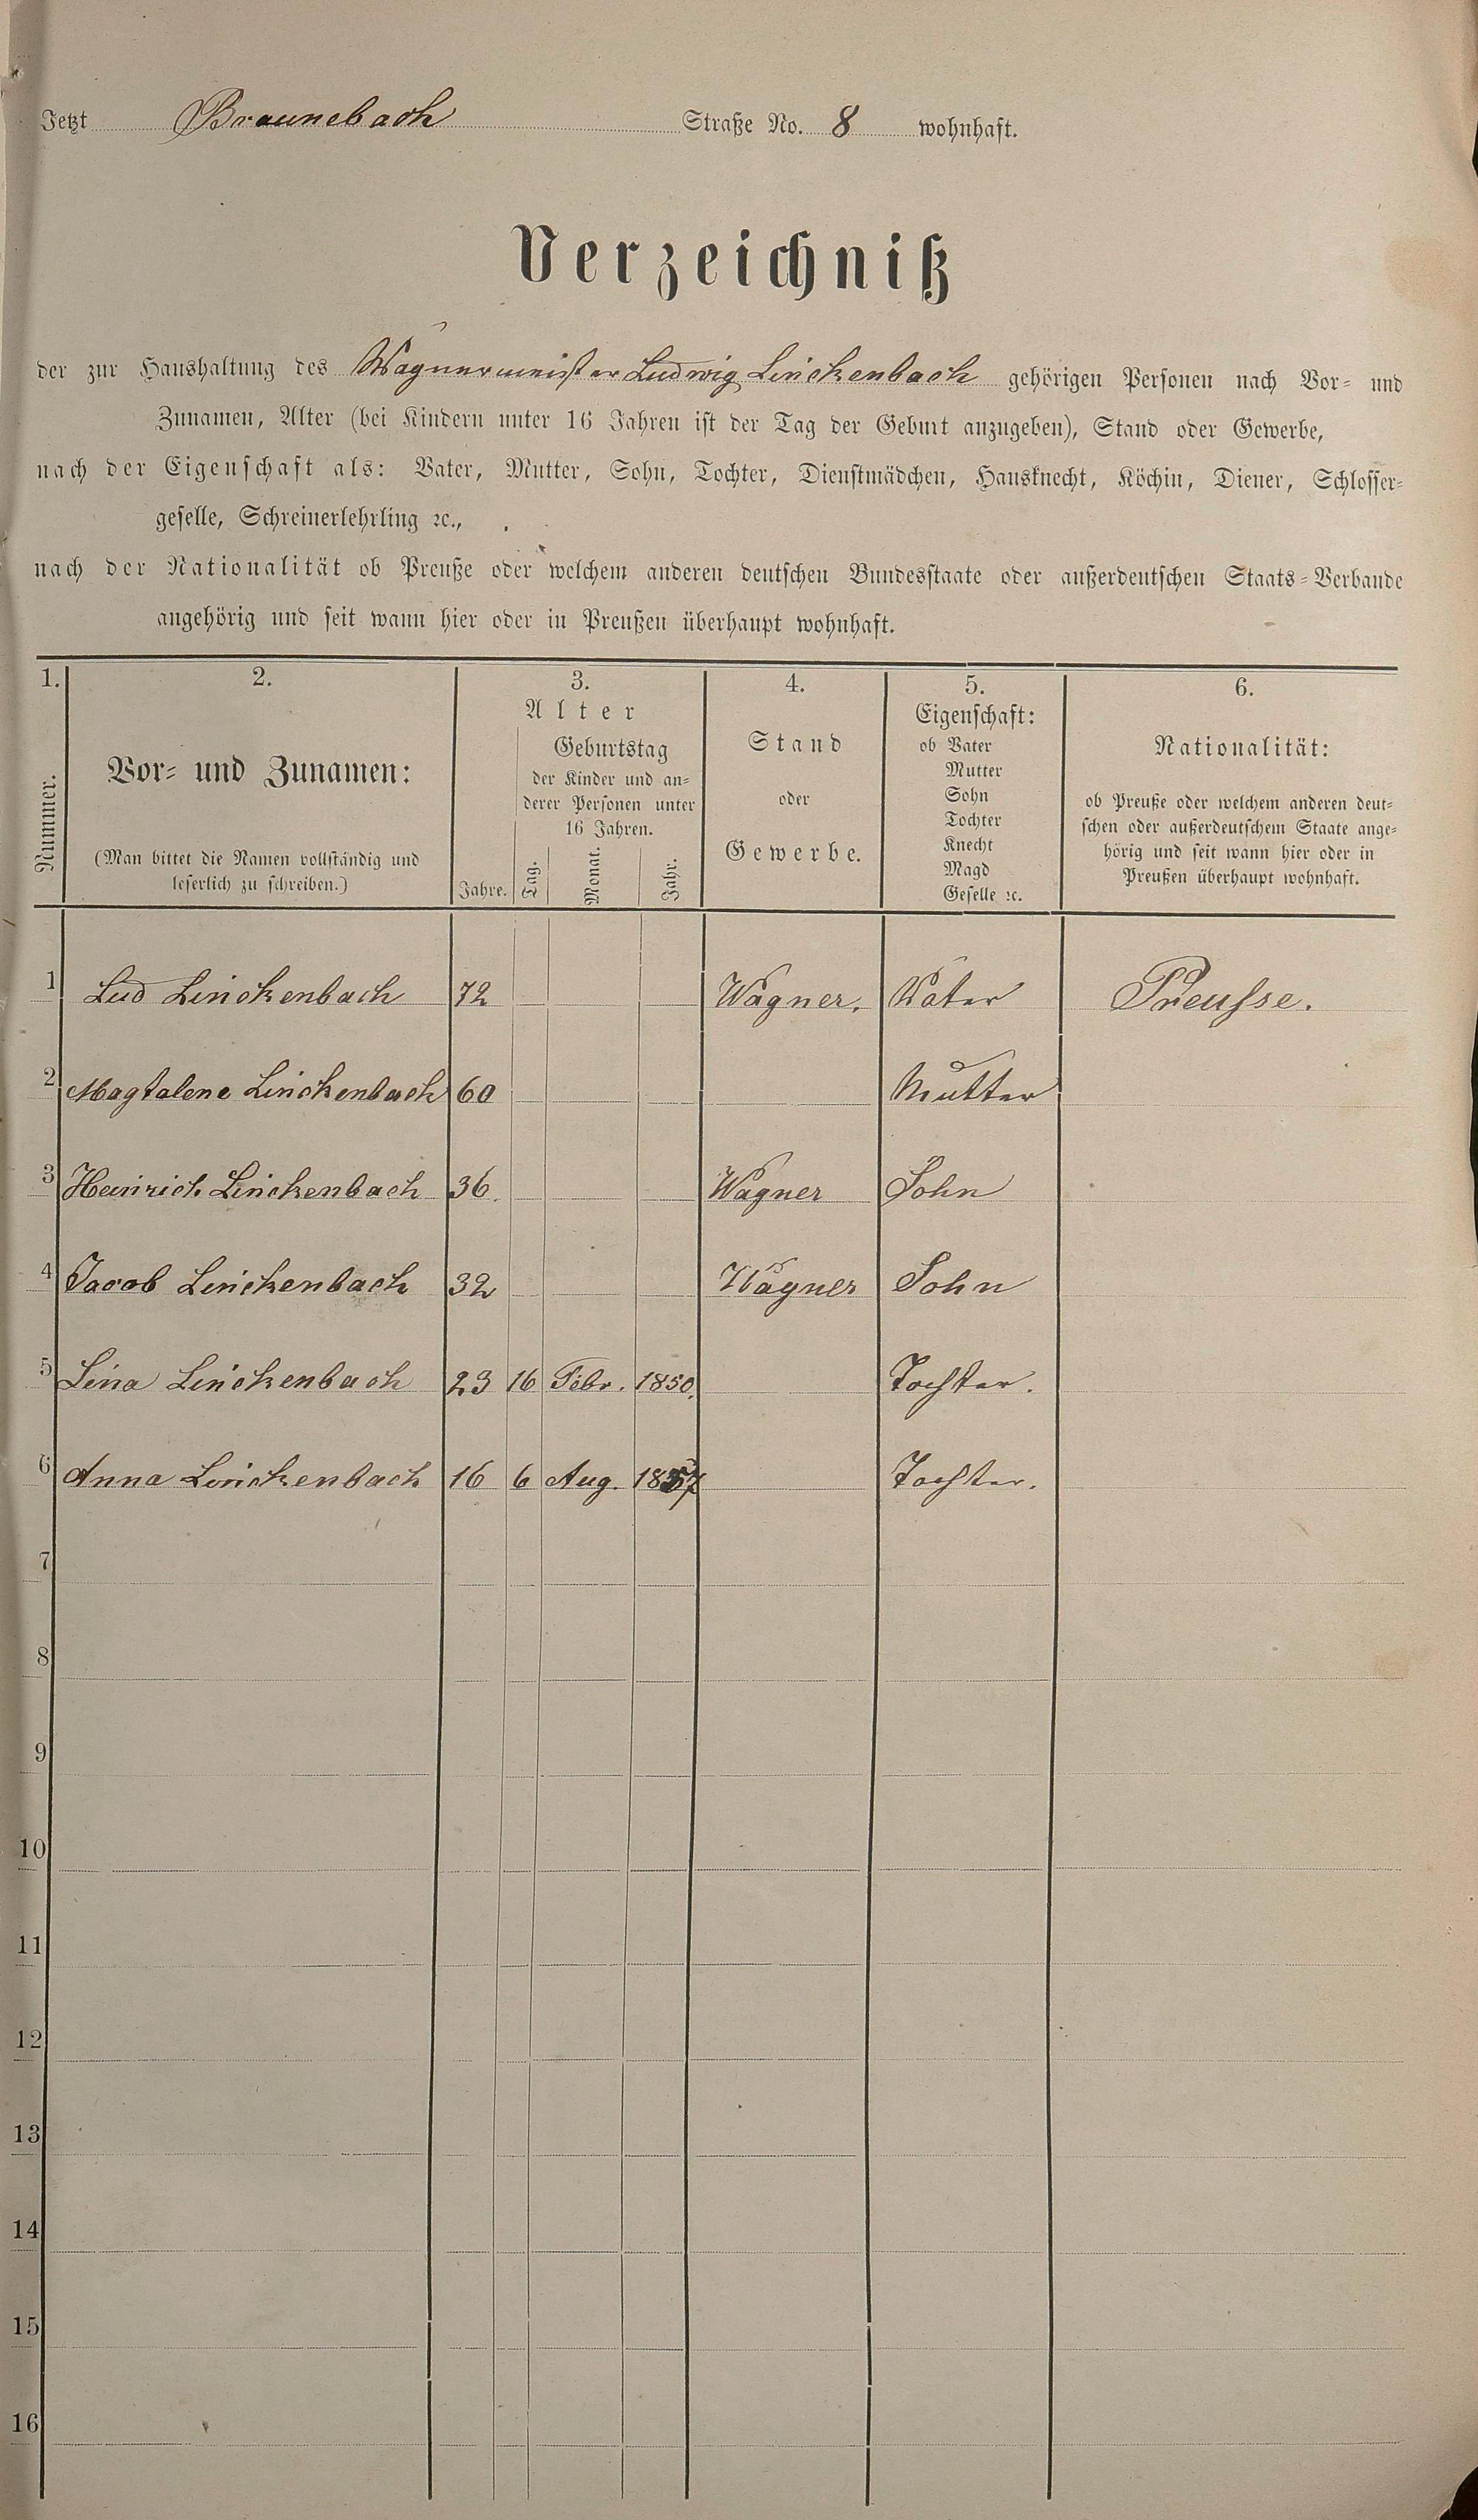 Jetzt Braunebach Straße No. 8 wohnhaft.
Verzeichniß
der zur Haushaltung des Wagnermeister Ludwig Linckenbach gehörigen Personen nach Vor- und
Zunamen, Alter (bei Kindern unter 16 Jahren ist der Tag der Geburt anzugeben), Stand oder Gewerbe,
nach der Eigenschaft als: Vater, Mutter, Sohn, Tochter, Dienstmädchen, Hausknecht, Köchin, Diener, Schlosser-
geselle, Schreinerlehrling ꝛc.,
nach der Nationalität ob Preuße oder welchem anderen deutschen Bundesstaate oder außerdeutschen Staats-Verbande
angehörig und seit wann hier oder in Preußen überhaupt wohnhaft.
1. 2. 3. 4. 5. 6.
Nummer.
Vor- und Zunamen:
(Man bittet die Namen vollständig und
leserlich zu schreiben.)
Alter
Geburtstag
der Kinder und an-
derer Personen unter
16 Jahren.
Jahre. Tag. Monat. Jahr.
Stand
oder
Gewerbe.
Eigenschaft:
ob Vater
Mutter
Sohn
Tochter
Knecht
Magd
Geselle ꝛc.
Nationalität:
ob Preuße oder welchem anderen deut-
schen oder außerdeutschem Staate ange-
hörig und seit wann hier oder in
Preußen überhaupt wohnhaft.
1 Lud Linckenbach 72 Wagner. Vater Preusse.
2 Magtalene Linckenbach 60 Mutter
3 Heinrich Linckenbach 36. Wagner Sohn
4 Jacob Linckenbach 32 Wagner Sohn
5 Lina Linckenbach 23 16 Febr. 1850. Tochter.
6 Anna Linckenbach 16 6 Aug. 1857 Tochter.
7
8
9
10
11
12
13
14
15
16